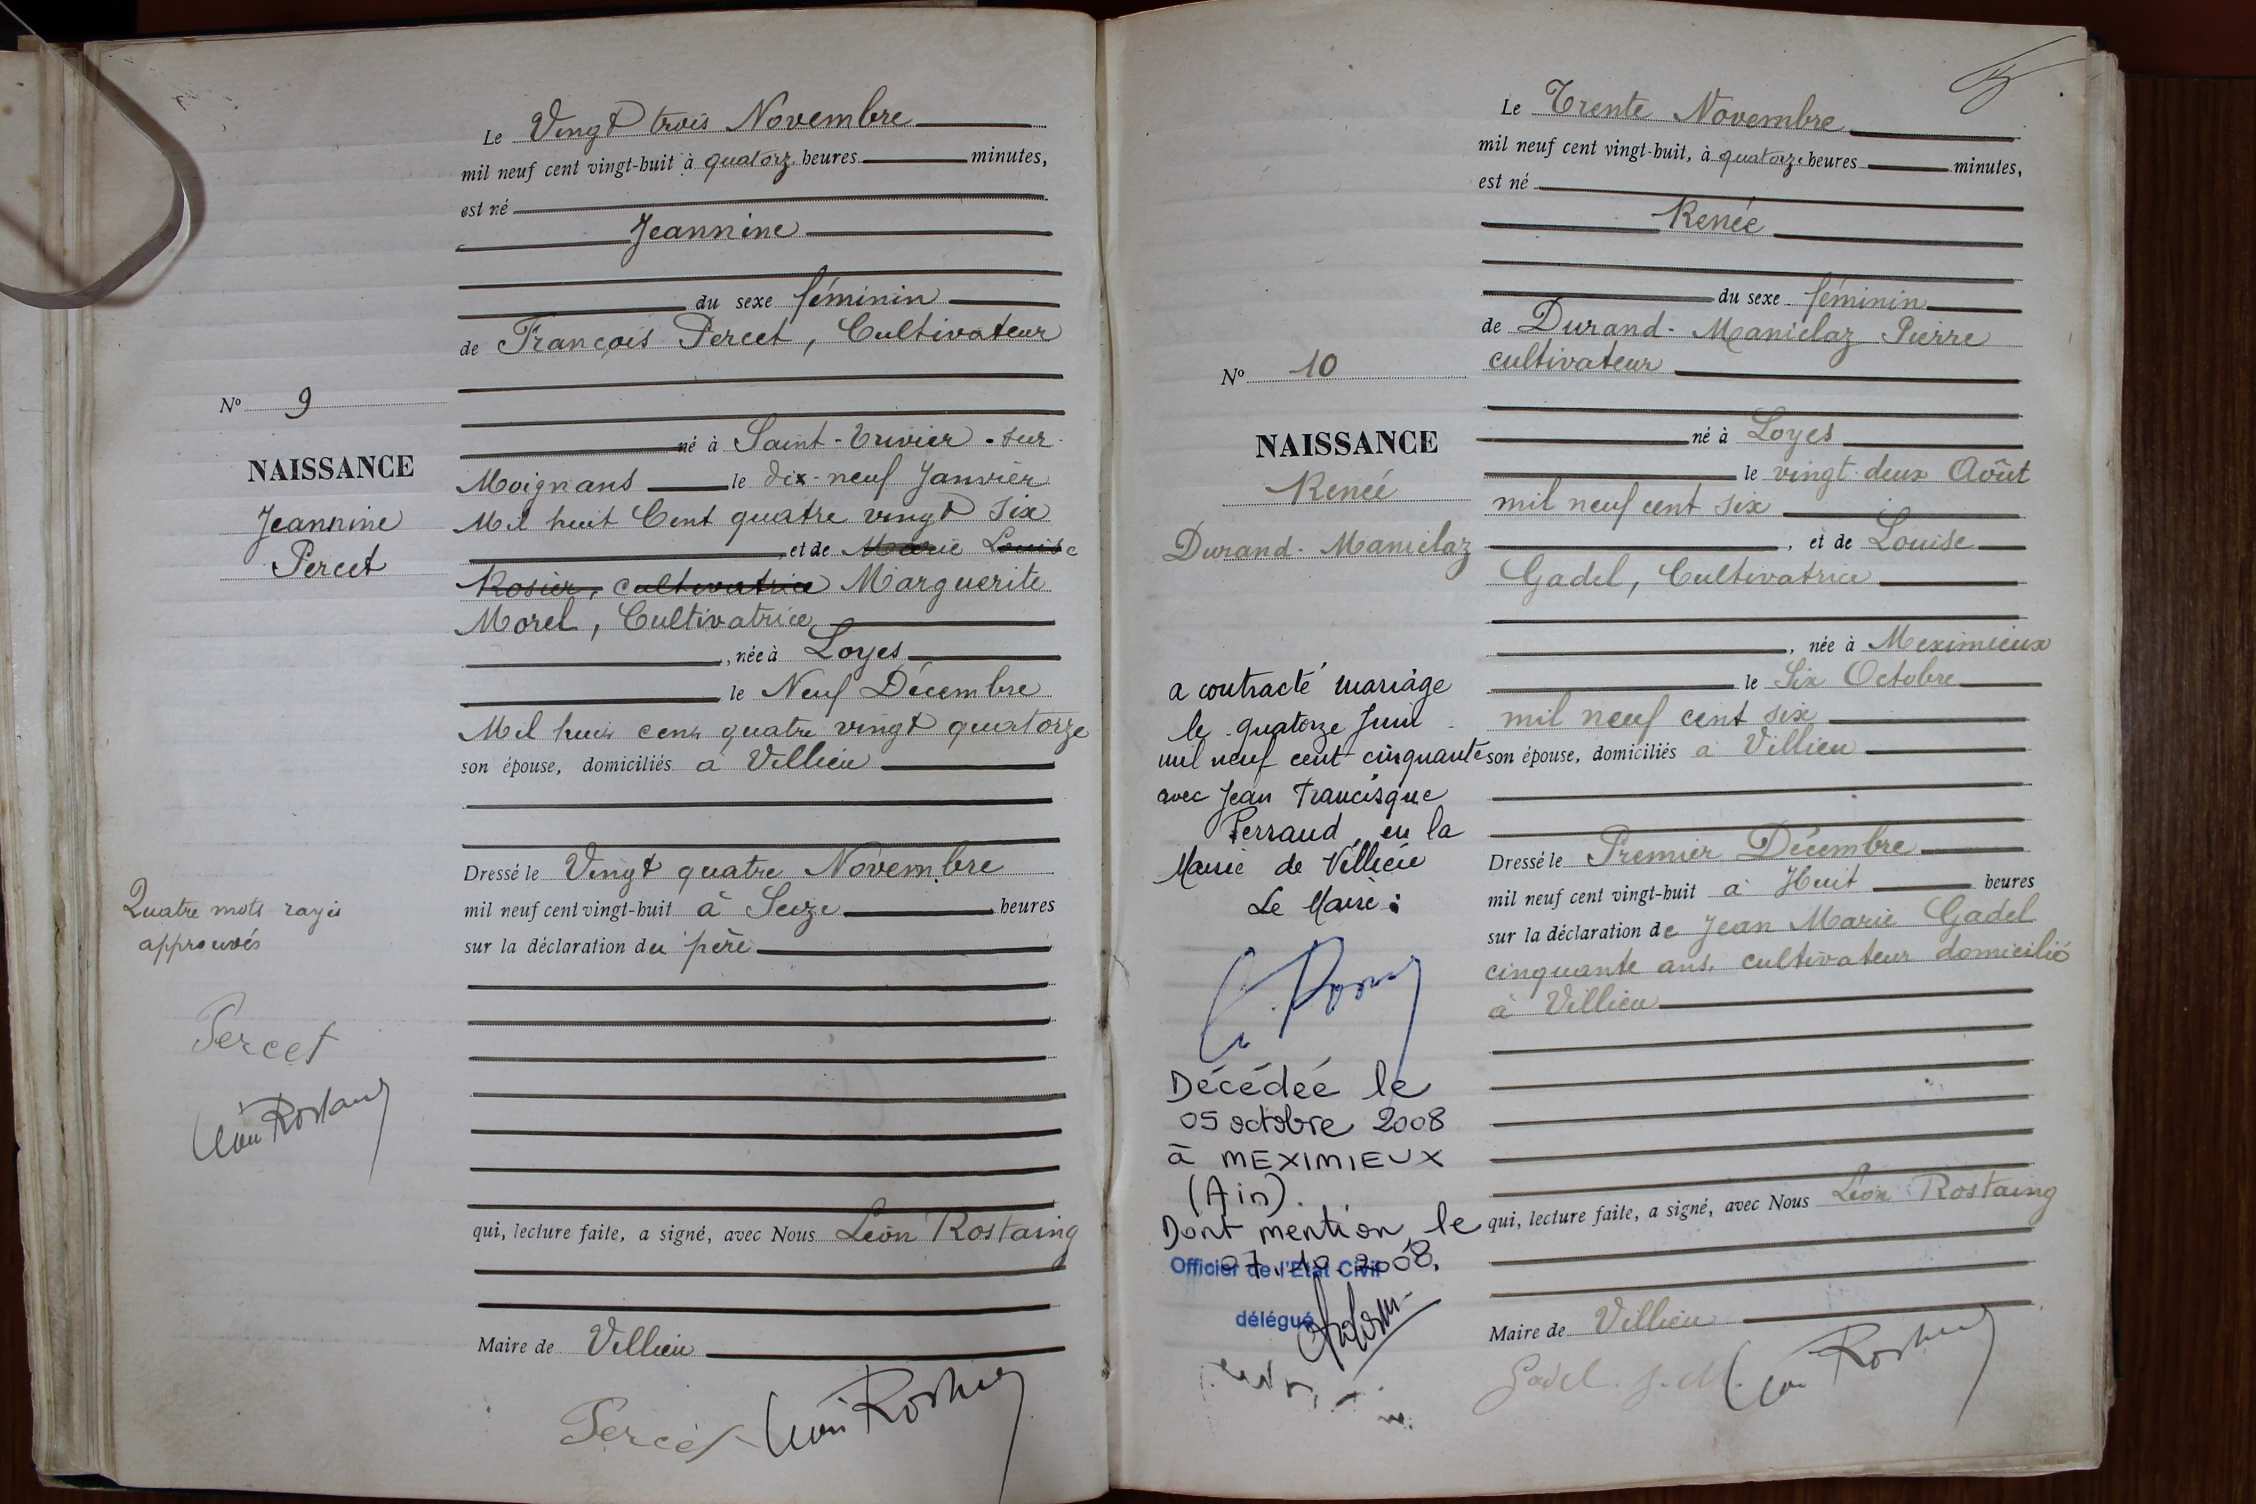 Le Vingt trois Novembre
mil neuf cent vingt-huit à quatorz heures minutes,
est né
Jeannine
du sexe féminin
de François Percet, Cultivateur
né à Saint-Trivier-sur-
Moignans le dix-neuf Janvier
Mil huit Cent quatre vingt six
, et de Marie Louise
Rosier, cultivatrice Marguerite
Morel, Cultivatrice
, née à Loyes
le Neuf Décembre
Mil huit cent quatre vingt quatorze
son épouse, domiciliés à Villieu
Dressé le Vingt quatre Novembre
mil neuf cent vingt-huit à Seize heures
sur la déclaration du père
qui, lecture faite, a signé, avec Nous Léon Rostaing
Maire de Villieu
Percet Léon Rostaing
No 9
NAISSANCE
Jeannine
Percet
Quatre mots rayés
approuvés
Percet
Léon Rostaing
Le Trente Novembre
mil neuf cent vingt-huit, à quatorze heures minutes,
est né
Renée
du sexe féminin
de Durand-Maniclaz Pierre
cultivateur
né à Loyes
le vingt-deux Août
mil neuf cent six
, et de Louise
Gadel, Cultivatrice
, née à Meximieux
le Six Octobre
mil neuf cent six
son épouse, domiciliés à Villieu
Dressé le Premier Décembre
mil neuf cent vingt-huit à Huit heures
sur la déclaration de Jean Marie Gadel
cinquante ans, cultivateur domicilié
à Villieu
qui, lecture faite, a signé, avec Nous Léon Rostaing
Maire de Villieu
Gadel J. M. Léon Rostaing
No 10
NAISSANCE
Renée
Durand-Maniclaz
a contracté mariage
le quatorze Juin
mil neuf cent cinquante
avec Jean Francisque
Perraud en la
Mairie de Villieu
Le Maire:
Décédée le
05 octobre 2008
à MEXIMIEUX
(Ain).
Dont mention le
07.10.2008.
Officier de l'Etat Civil
délégué